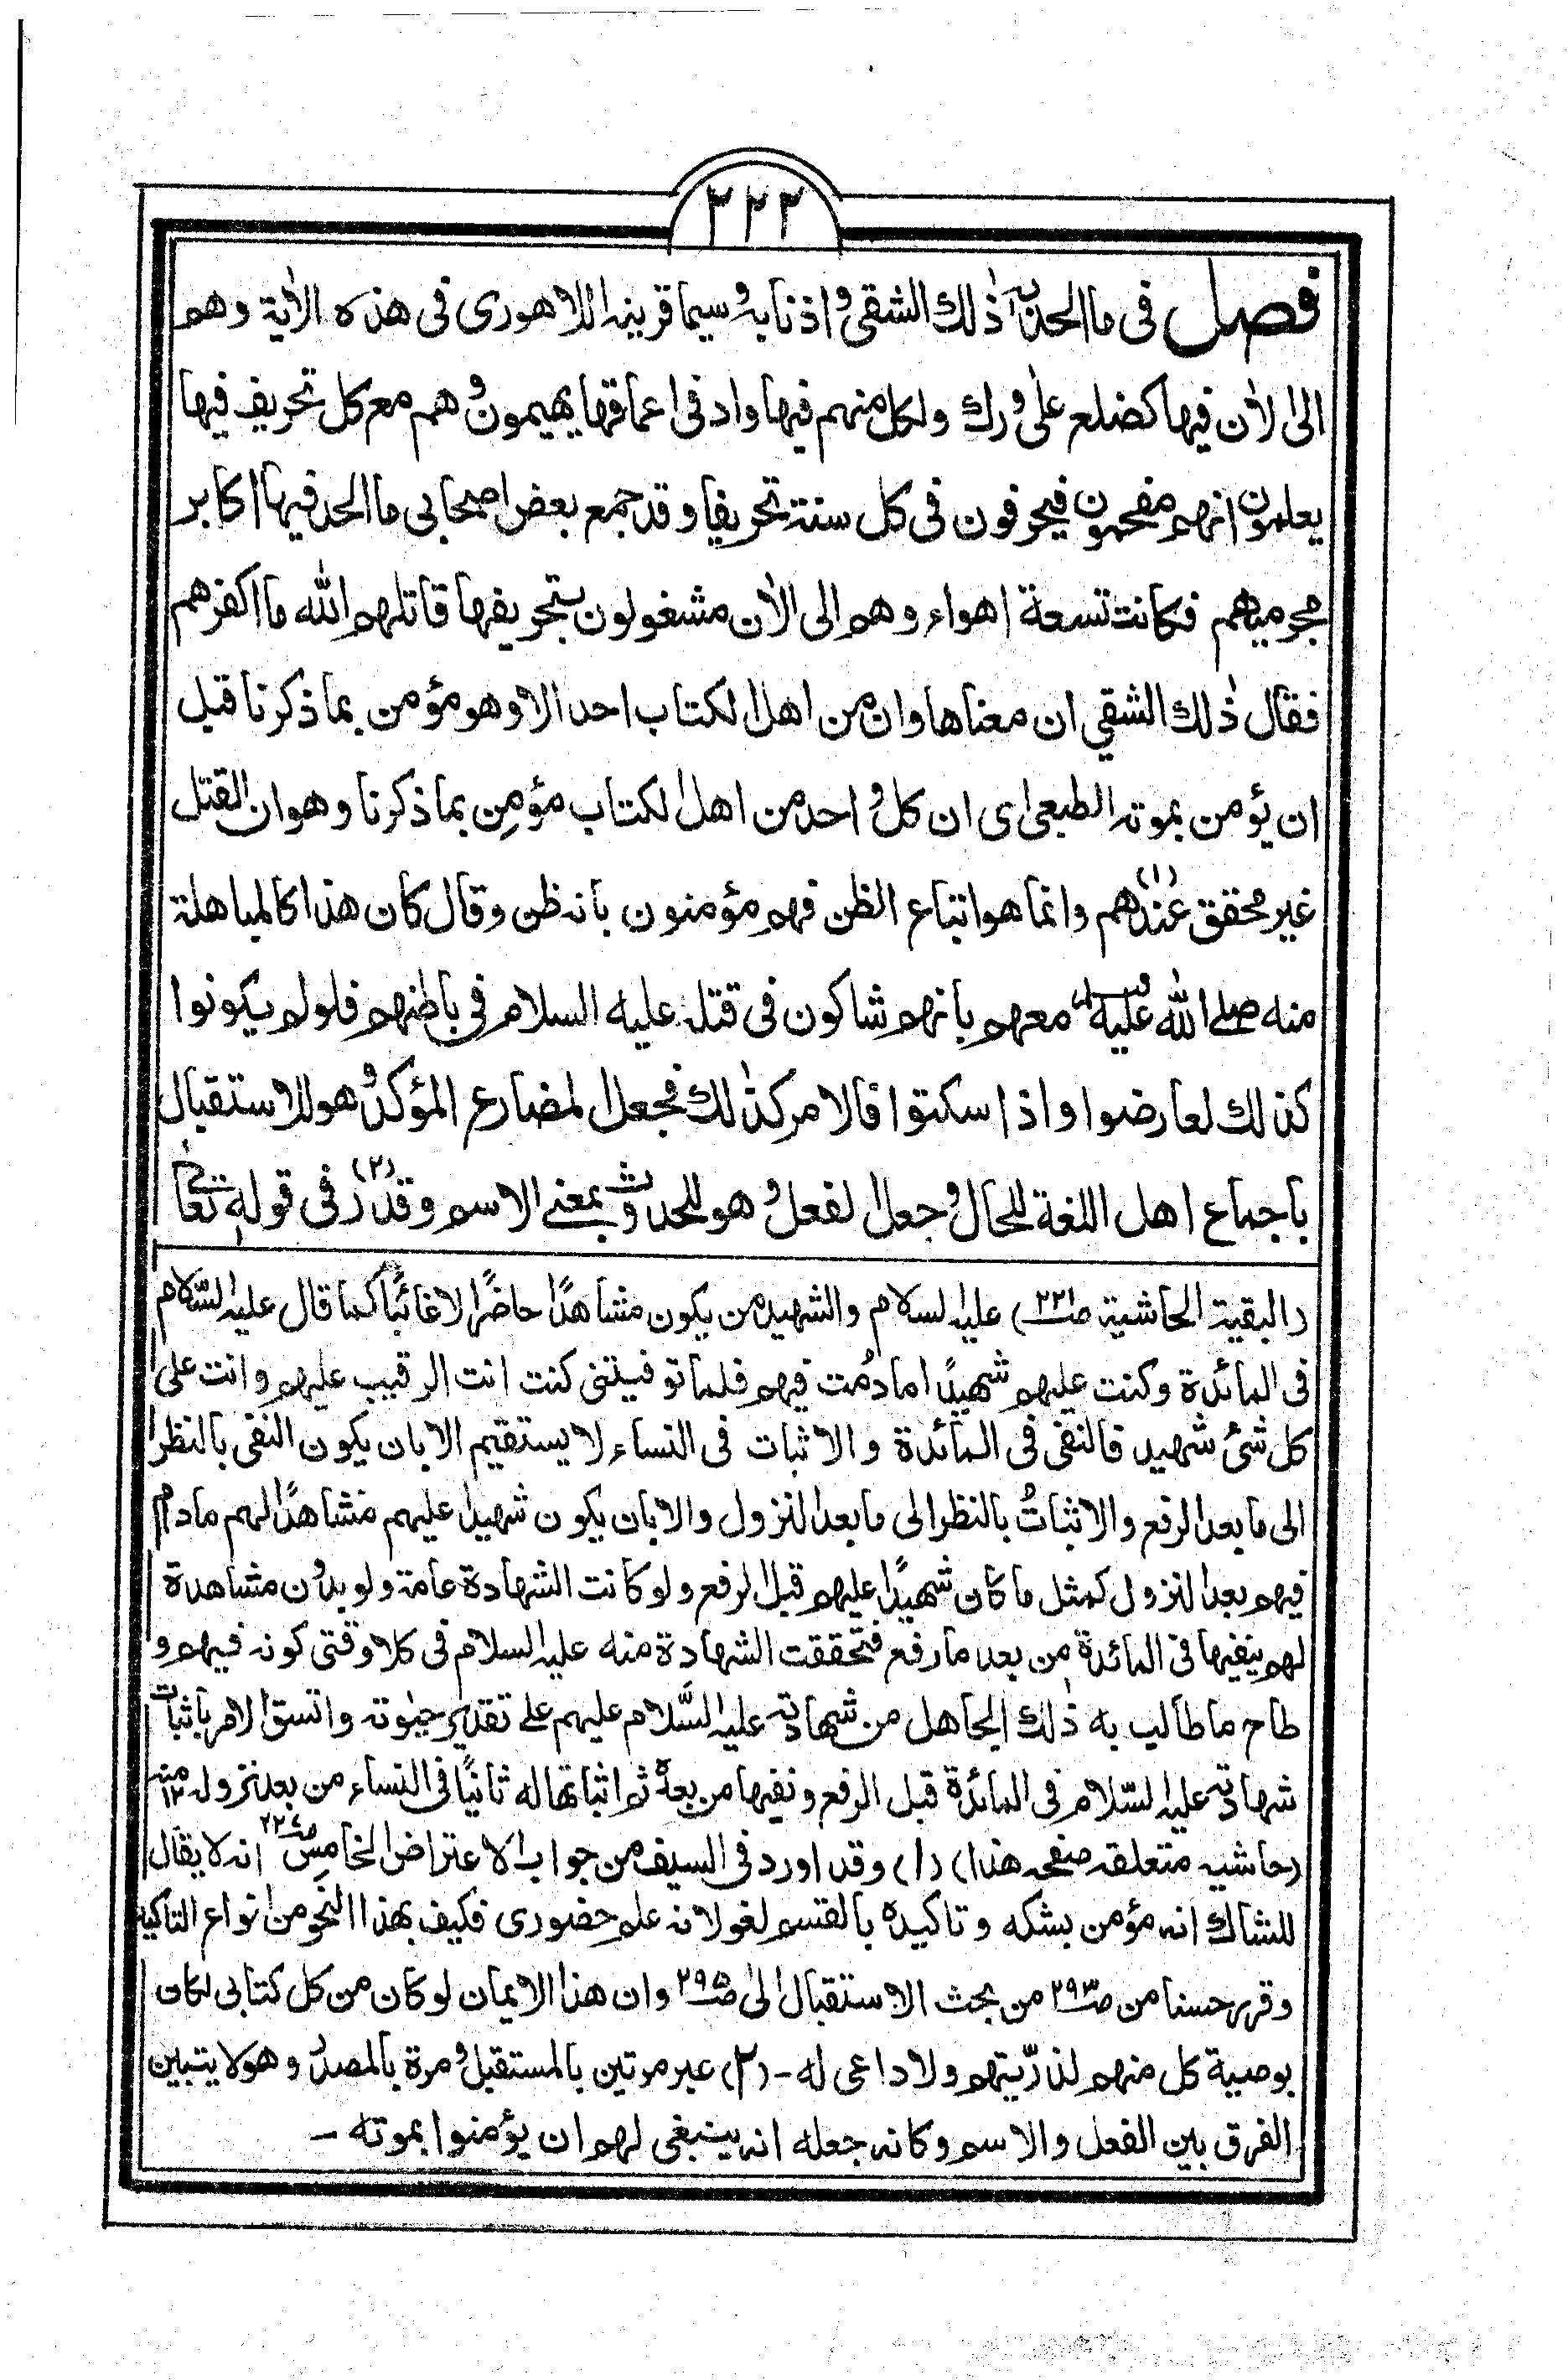 ٢٢٢
فصل فى ما الحد به ذلك الشقى واذنابه وسيما قرينه اللاهورى فى هذه الاٰية وهم
الى الاٰن فيها كضلع على ورك ولكل منهم فيها واد فى اعماقها يهيمون وهم مع كل تحريف فيها
يعلمون انهم مفحمون فيحرفون فى كل سنة تحريفا وقد جمع بعض اصحابى ما الحد فيها اكابر
مجرميهم فكانت تسعة اهواء وهم الى الاٰن مشغولون بتحريفها قاتلهم الله ما اكفرهم
فقال ذٰلك الشقي ان معناها وان من اهل الكتاب احد الا وهو مؤمن بما ذكرنا قبل
ان يؤمن بموته الطبعى اى ان كل واحد من اهل الكتاب مؤمن بما ذكرنا وهو ان القتل
غير محقق عندهم (١) وانما هو اتباع الظن فهم مؤمنون بانه ظن وقال كان هذا كالمباهلة
منه صلے الله عليه وسلم معهم بانهم شاكون فى قتله عليه السلام فى باطنهم فلو لم يكونوا
كذلك لعارضوا واذا سكتوا فالامر كذٰلك فجعل المضارع المؤكد وهو للاستقبال
باجماع اهل اللغة للحال وجعل الفعل وهو للحدوث بمعنے الاسم وقدر (٢) فى قوله تعالٰے
(البقية الحاشية صـ٢٢١) عليه السلام والشهيد من يكون مشاهدًا حاضرًا لا غائبًا كما قال عليه السّلام
فى المائدة وكنت عليهم شهيدًا ما دُمت فيهم فلما توفيتنى كنت انت الرقيب عليهم وانت علىٰ
كل شئ شهيد فالنفى فى المائدة والاثبات فى النساء لا يستقيم الا بان يكون النفى بالنظر
الى ما بعد الرفع والاثباتُ بالنظر الى ما بعد النزول والا بان يكون شهيدا عليهم مشاهدًا لهم مادام
فيهم بعد النزول كمثل ما كان شهيدًا عليهم قبل الرفع ولو كانت الشهادة عامة ولو بدون مشاهدة
لهم ينفيها فى المائدة من بعد ما رفع فتحققت الشهادة منه عليه السلام فى كلا وقتى كونه فيهم و
طاح ما طالب به ذٰلك الجاهل من شهادته عليه السَّلام عليهم علے تقدير حيٰوته واتسق الامر باثبات
شهادته عليه السّلام فى المائدة قبل الرفع ونفيها من بعده ثم اثباتها له ثانيًا فى النساء من بعد نزوله ١٢ منه
(حاشيه متعلقه صفحه هذا) (١) وقد اورد فى السيف من جواب الاعتراض الخامس صـ٢٢٤ انه لا يقال
للشاك انه مؤمن بشكه وتاكيده بالقسم لغو لانه علم حضورى فكيف بهذا النحو من انواع التاكيد
وقرره حسنا من صـ٢٩٣ من بحث الاستقبال الىٰ صـ٢٩٥ وان هذا الايمان لو كان من كل كتابى لكان
بوصية كل منهم لذرّيتهم ولا داعى له - (٢) عبر مرتين بالمستقبل ومرة بالمصدر وهو لا يتبين
الفرق بين الفعل والاسم وكانه جعله انه ينبغى لهم ان يؤمنوا بموته -